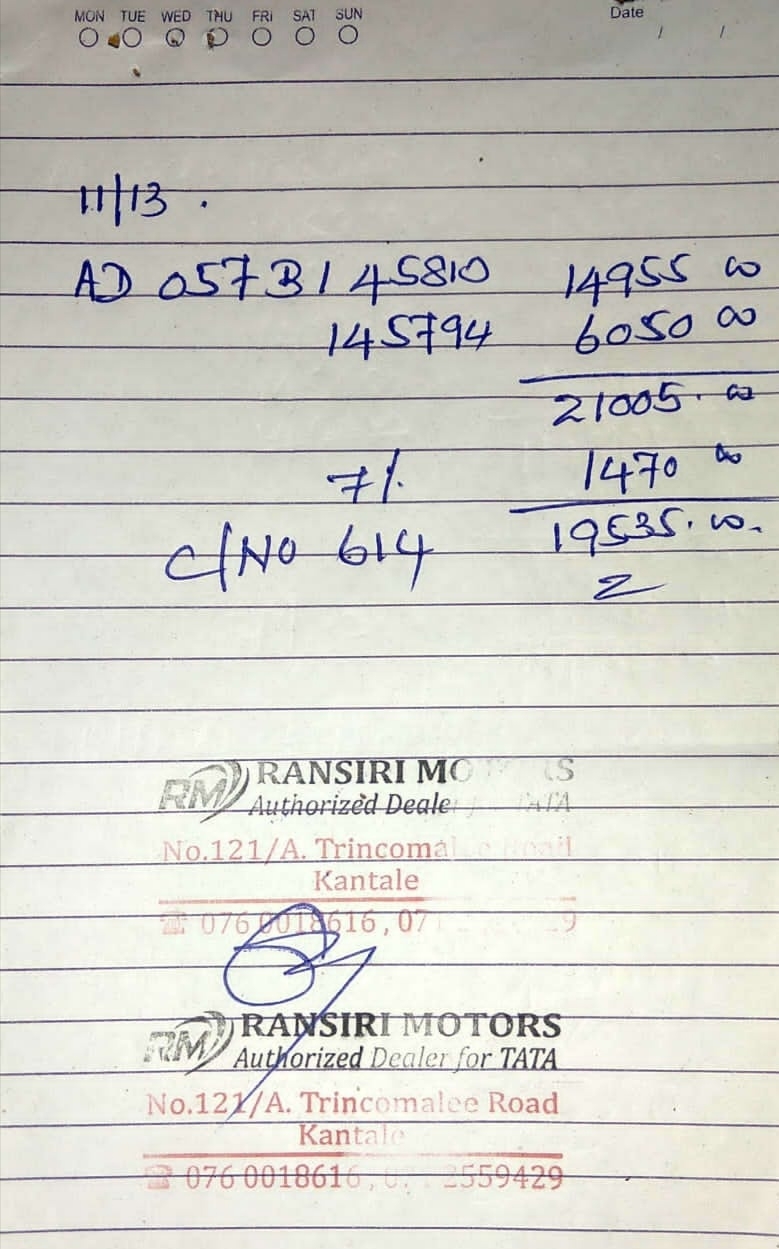 MON TUE WED THU FRI SAT SUN
Date / /
11/13 .
AD 057 B 145810 14955 00
145794 6050 00
21005.00
7% 1470 00
C/NO 614 19535.00
RM RANSIRI MOTORS
Authorized Dealer for TATA
No.121/A. Trincomalee Road
Kantale
☎ 076 0018616, 07 9
RM RANSIRI MOTORS
Authorized Dealer for TATA
No.121/A. Trincomalee Road
Kantale
☎ 076 0018616, 2559429